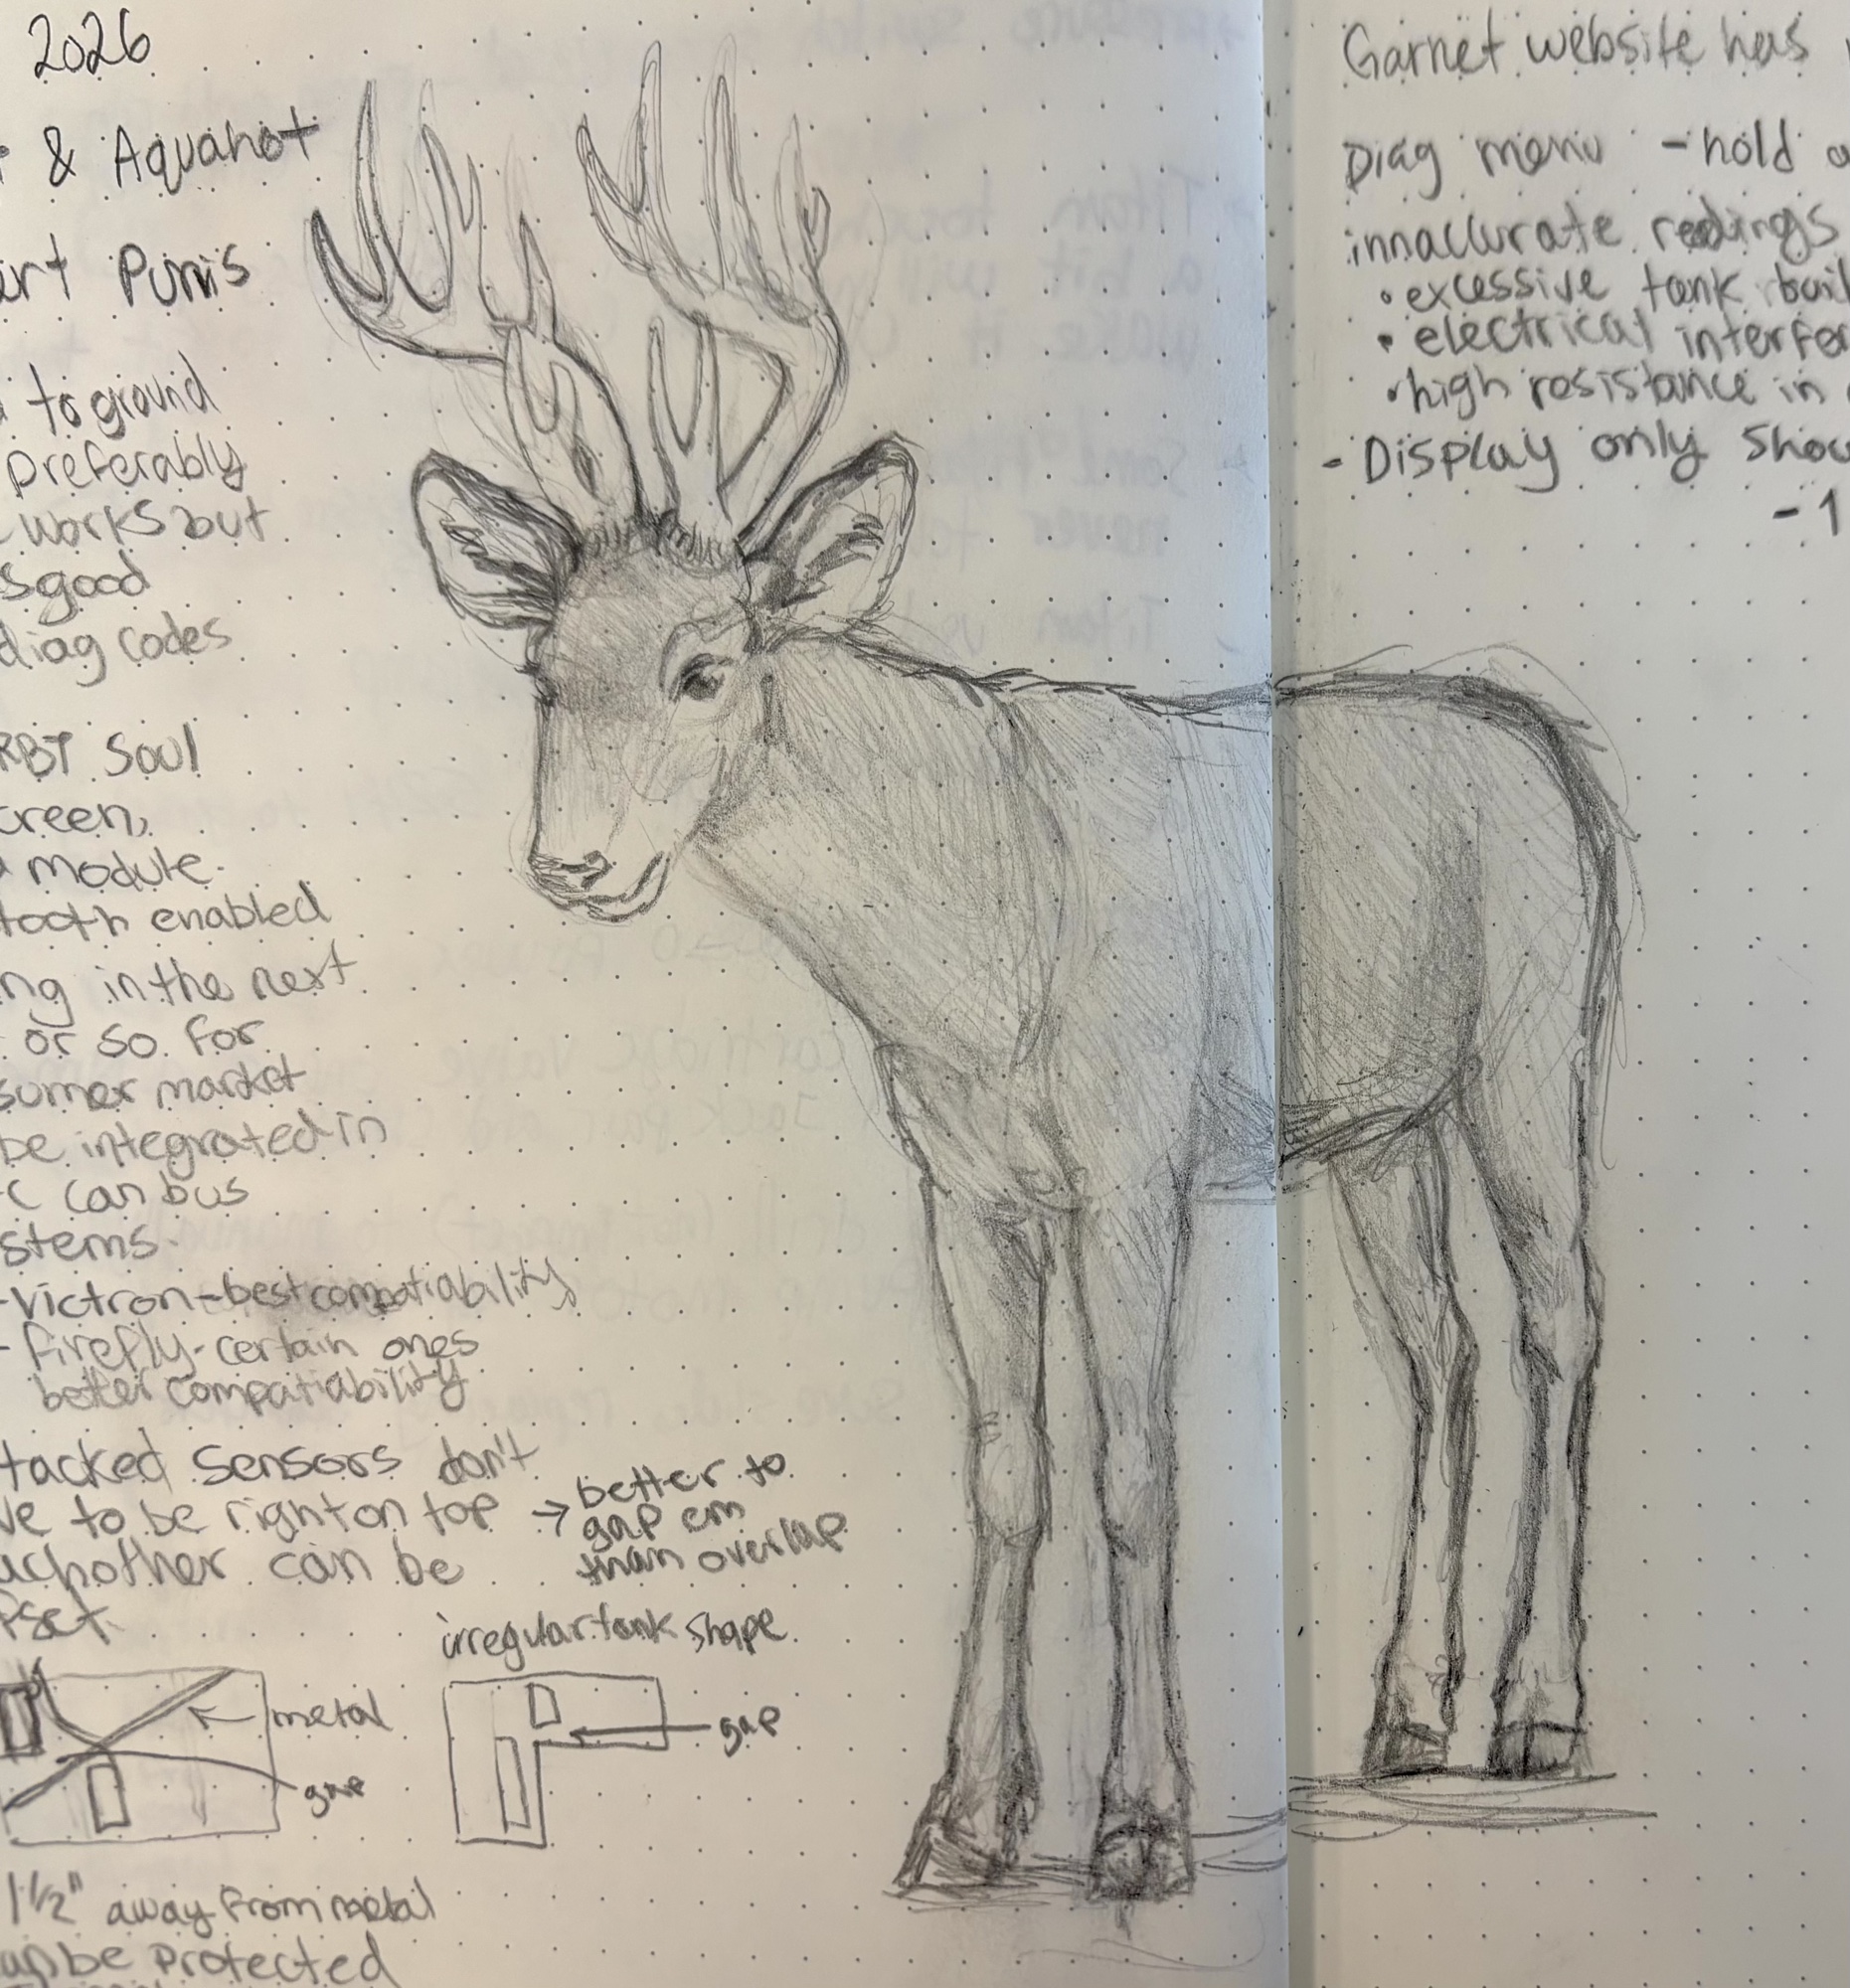 2026
& Aquahot
to ground
preferably
works but
good
diag codes
RBT Soul
creen,
module
tooth enabled
ng in the next
or so for
sumer market
be integrated in
C Can bus
stems
-Victron-best compatiability
- Firefly-certain ones
better compatiability
tacked sensors don't
ve to be right on top → better to
gap em
than overlap
achother can be
fset
irregular tank shape
metal
gap
gap
1 1/2" away from metal
be Protected
Garnet website has
Diag menu - hold
innaccurate readings
• excessive tank buil
• electrical interfer
• high resistance in
- Display only show
- 1